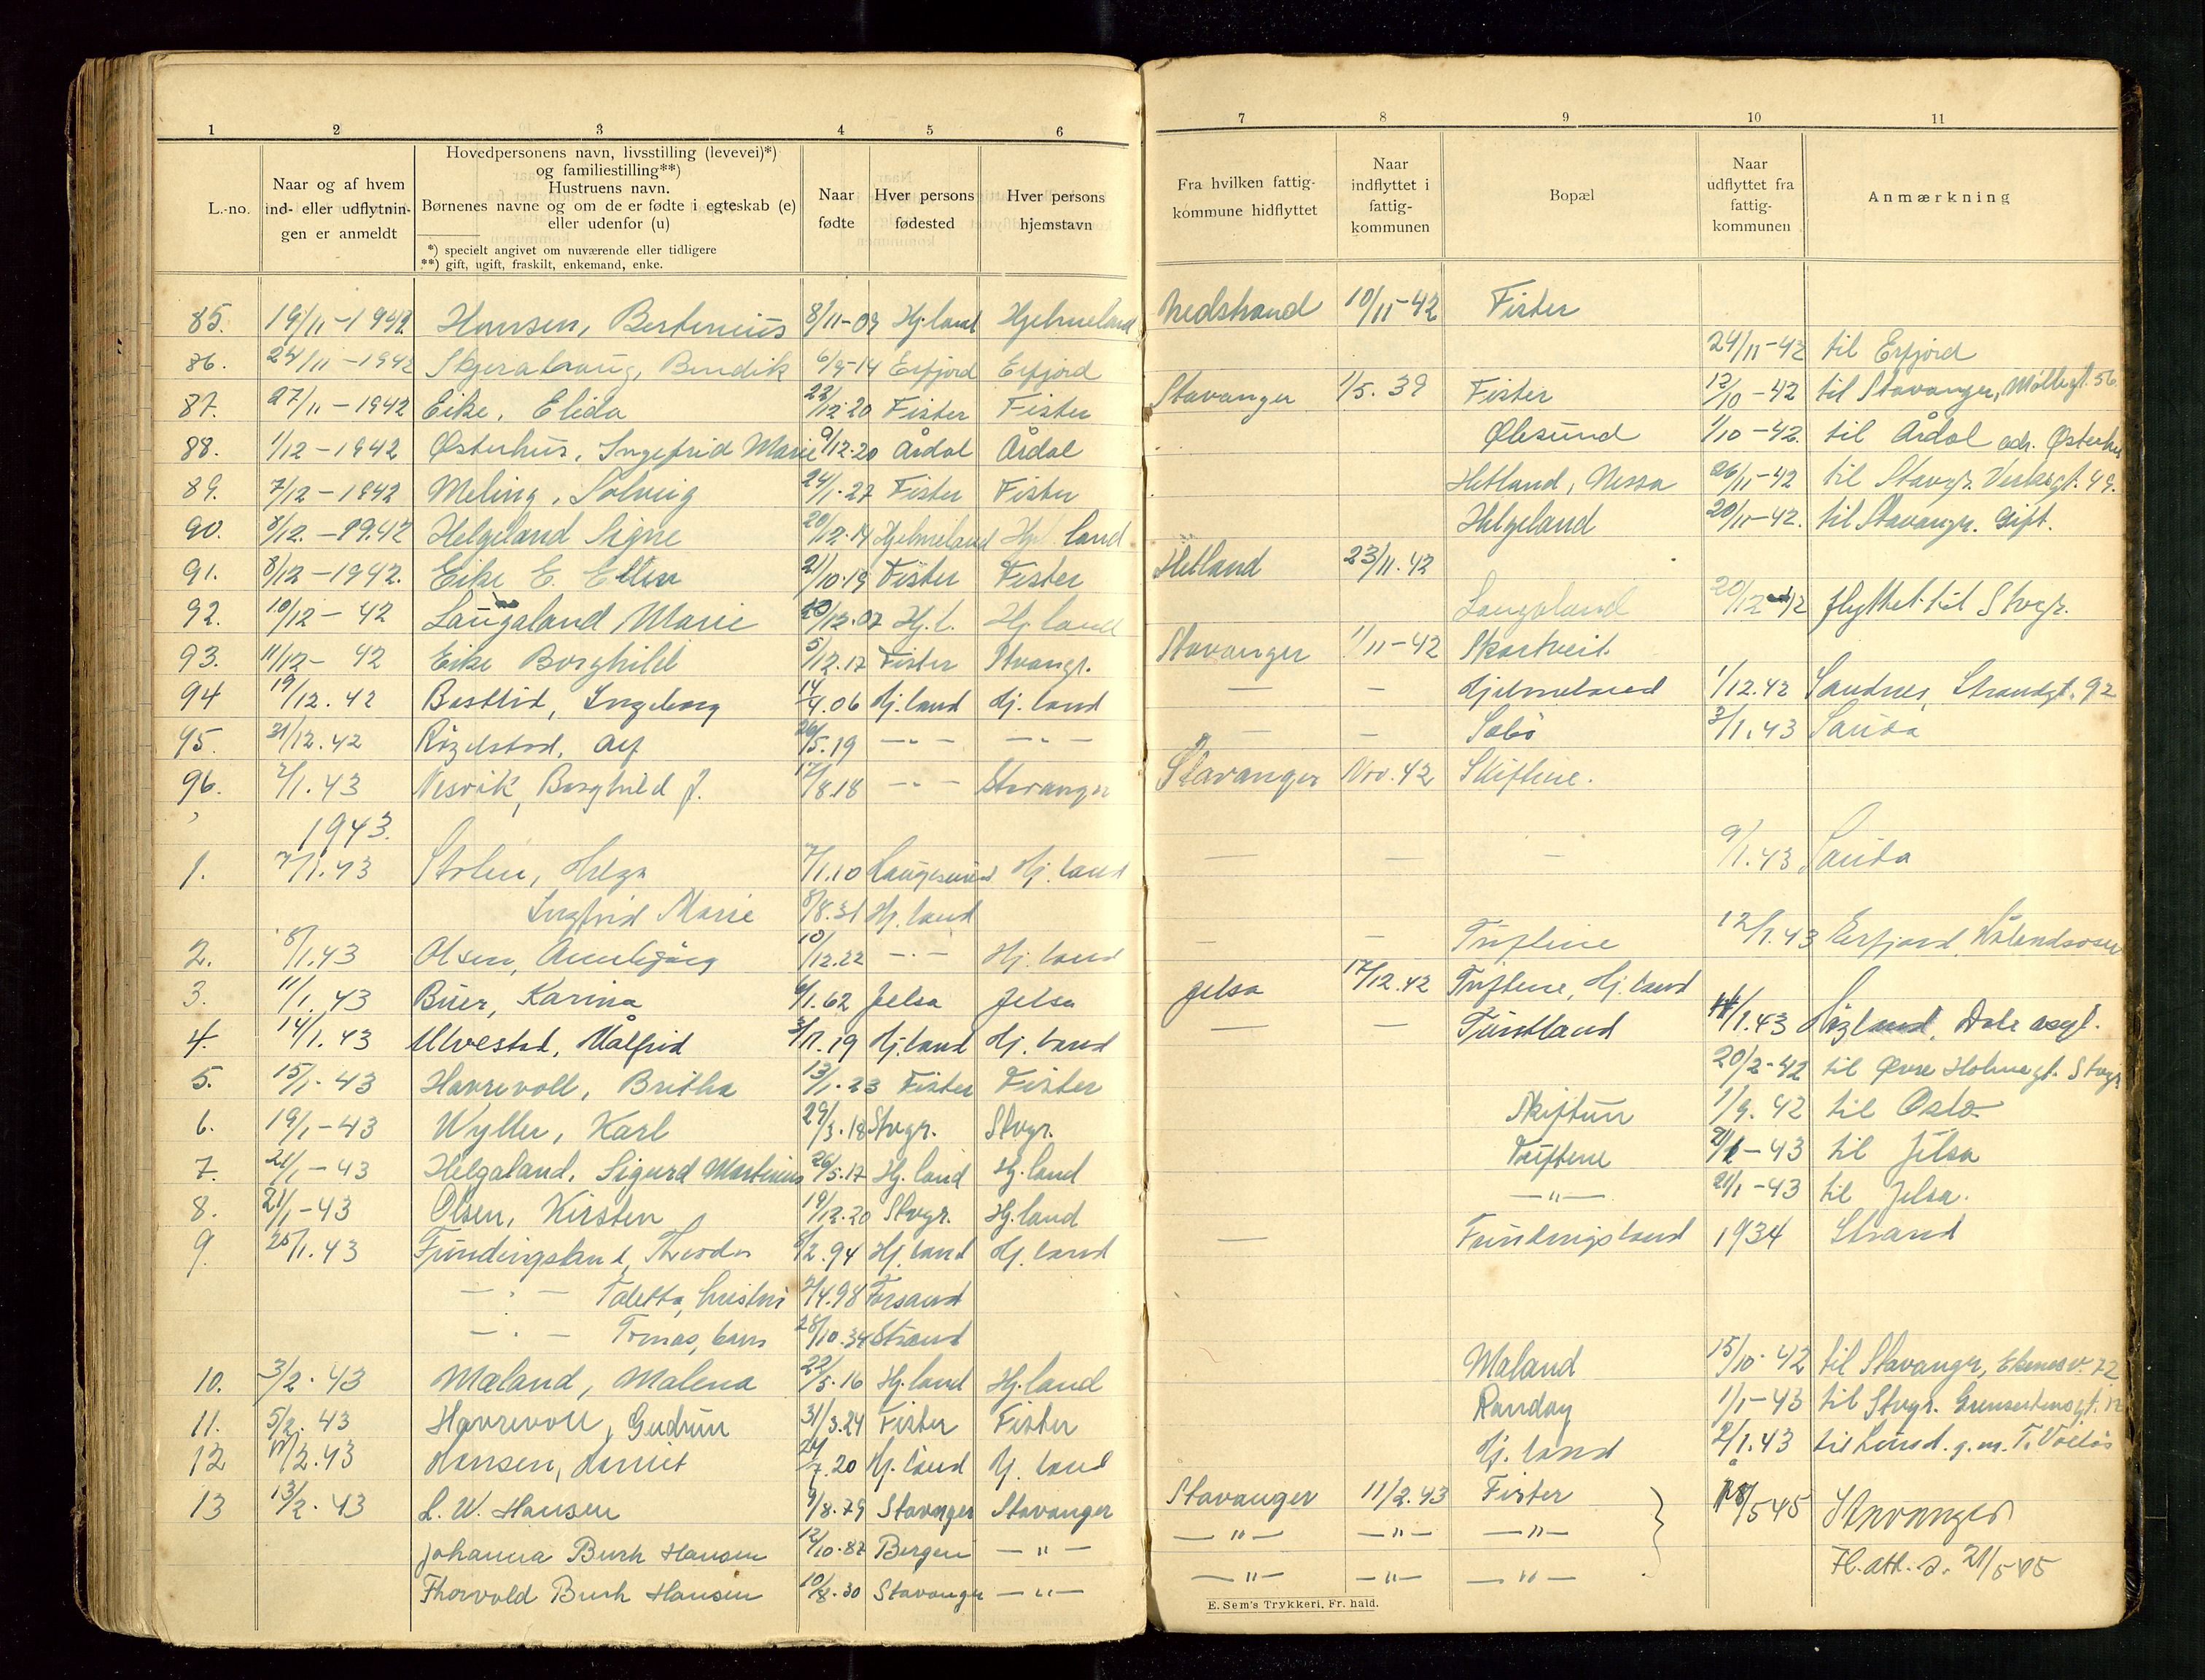 1 2 3 4 5 6 7 8 9 10 11
L.-no.
Naar og af hvem ind- eller udflytnin- gen er anmeldt
Hovedpersonens navn, livsstilling (levevei)*) og familiestilling**) Hustruens navn. Børnenes navne og om de er fødte i egteskab (e) eller udenfor (u)
*) specielt angivet om nuværende eller tidligere
**) gift, ugift, fraskilt, enkemand, enke.
Naar fødte
Hver persons fødested
Hver persons hjemstavn
Fra hvilken fattig- kommune hidflyttet
Naar indflyttet i fattig- kommunen
Bopæl
Naar udflyttet fra fattig- kommunen
Anmærkning
85. 19/11-1942 Hansen, Bertinius 8/11-09 Hj.land Hjelmeland Nedstrand 10/11-42 Fister
86. 24/11-1942 Skjerabraug, Bendik 6/9-14 Erfjord Erfjord 24/11-42 til Erfjord
87. 27/11-1942 Eike, Elida 22/12-20 Fister Fister Stavanger 1/5.39 Fister 12/10-42 til Stavanger, Møllegt. 56.
88. 1/12-1942 Østerhus, Ingefrid Marie 9/12-20 Årdal Årdal Ølesund 1/10-42. til Årdal adr. Østerhus
89. 7/12-1942 Meling, Solveig 24/1-27 Fister Fister Hetland, Nessa 26/11-42 til Stavgr. Verksgt. 49.
90. 8/12.-19.42 Helgeland Signe 20/12-14 Hjelmeland Hj. land Helgeland 20/11-42. til Stavangr. Gift.
91. 8/12-1942. Eike E. Ellen 21/10-19 Fister Fister Hetland 23/11.42
92. 10/12-42 Laugaland Marie /12.07 Hj.l. Hj. land Laugaland 20/12-42 flyttet til Stvgr.
93. 11/12-42 Eike Borghild 5/12.17 Fister Stvangr. Stavanger 1/11-42 Skartveit
94 19/12.42 Bastlid, Ingeborg 14/4.06 Hj.land Hj.land — — Hjelmeland 1/12.42 Sandnes, Strandgt. 92
95. 31/12.42 Rizelstad, Alf 26/5.19 —"— —"— — — Sabø 3/1.43 Sauda
96. 2/1.43 Nesvik, Borghild J. 17/8.18 —"— Stavanger Stavanger Nov.42 Skiftene.
1943.
1. 7/1.43 Stolen, Helga 7/1.10 Haugesund Hj.land — — — 9/1.43 Sauda
Ingfrid Marie 8/8.31 Hj.land
2. 8/1.43 Olsen, 10/12.22 —"— Hj.land — — Tuftene 12/1.43 Erfjord,
3. 11/1.43 Buer, Karina 4/1.62 Jelsa Jelsa Jelsa 17/12.42 Tuftene, Hj.land
4. 14/1.43 Ulvestad, Målfrid 3/1.19 Hj.land Hj.land — — Tuntland /1.43
5. 15/1-43 Havrevoll, Britha 13/1-23 Fister Fister 20/2-42 til Øvre Holmegt. Stvgr
6. 19/1-43 Wyller, Karl 29/3.18 Stvgr. Stvgr. Skiftun 1/9.42 til Oslo
7. 21/1-43 Helgaland, Sigurd Martinius 26/5.17 Hj.land Hj.land Tuftene /1-43 til Jelsa
8. 21/1-43 Olsen, Kirsten 19/12.20 Stvgr. Hj.land —"— 21/1-43 til Jelsa.
9. 25/1.43 Fundingsland, Theodor /2.94 Hj.land Hj.land — Fundingsland 1934 Strand
—"— Taletta, hustru 2/4.98 Forsand
—"— Tomas, barn 28/10.34 Strand
10. 3/2.43 Mæland, Malena 22/5.16 Hj.land Hj.land Mæland 15/10-42 til Stavangr, Ekenesv. 72
11. 5/2.43 Havrevoll, Gudrun 31/3.24 Fister Fister Randøy 1/1-43 til Stvgr.
12 /2.43 Hansen, Harriet 24/7.20 Hj.land Hj.land Hj.land 2/1.43 til Lund. g.m. T.
13 13/2.43 L. W. Hansen 9/8.79 Stavanger Stavanger Stavanger 11/2.43 Fister 18/5 45 Stavanger
Johanna Burh Hansen 12/10.87 Bergen —"— —"— —"— —"—
Thorvold Burh Hansen 10/8.30 Stavanger —"— —"— —"— —"— Fl.att. d. 21/5 45
E. Sem's Trykkeri, Fr. hald.